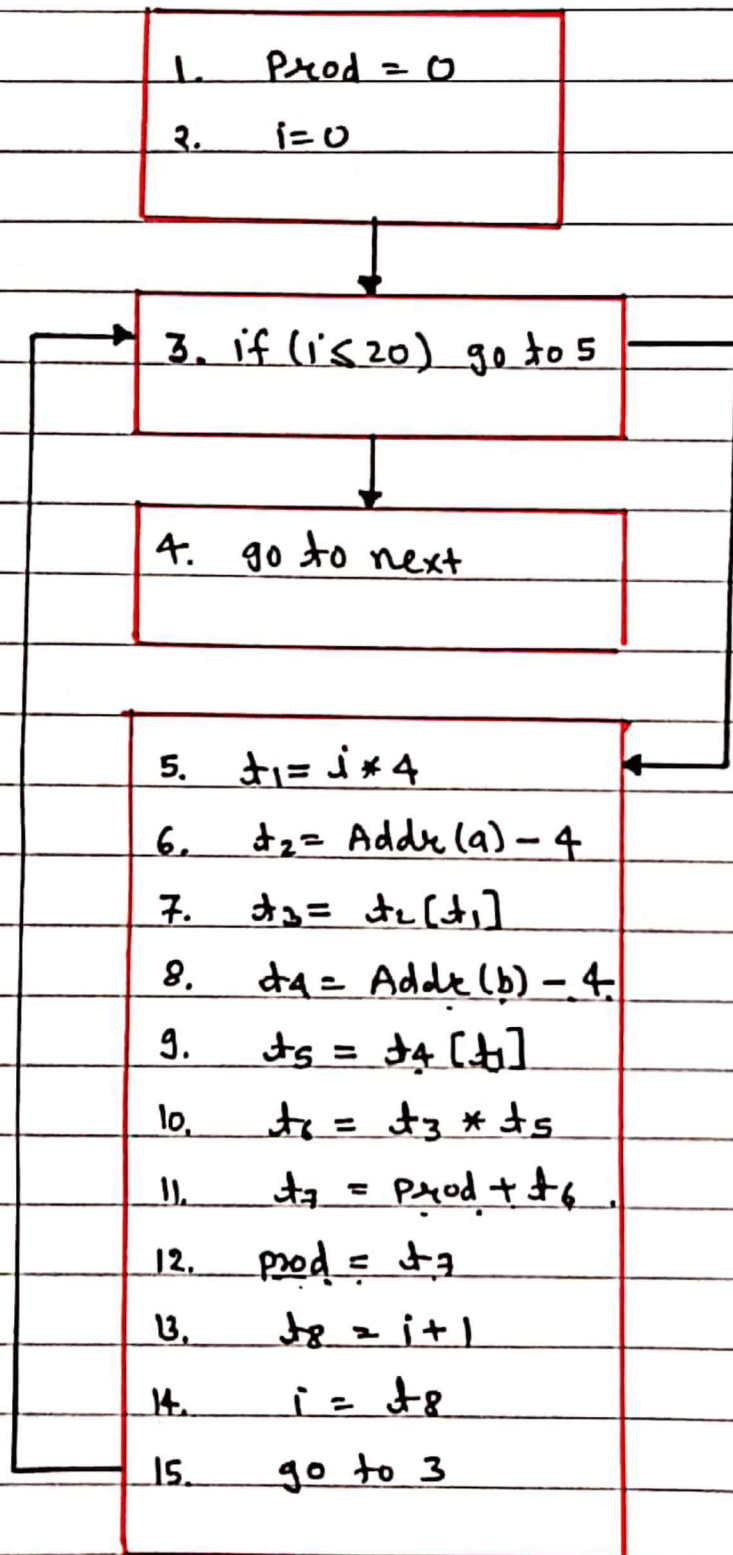 1. Prod = 0
2. i=0
3. if (i≤20) go to 5
4. go to next
5. t1 = i * 4
6. t2 = Addr(a) - 4
7. t3 = t2[t1]
8. t4 = Addr(b) - 4
9. t5 = t4[t1]
10. t6 = t3 * t5
11. t7 = Prod + t6
12. prod = t7
13. t8 = i+1
14. i = t8
15. go to 3